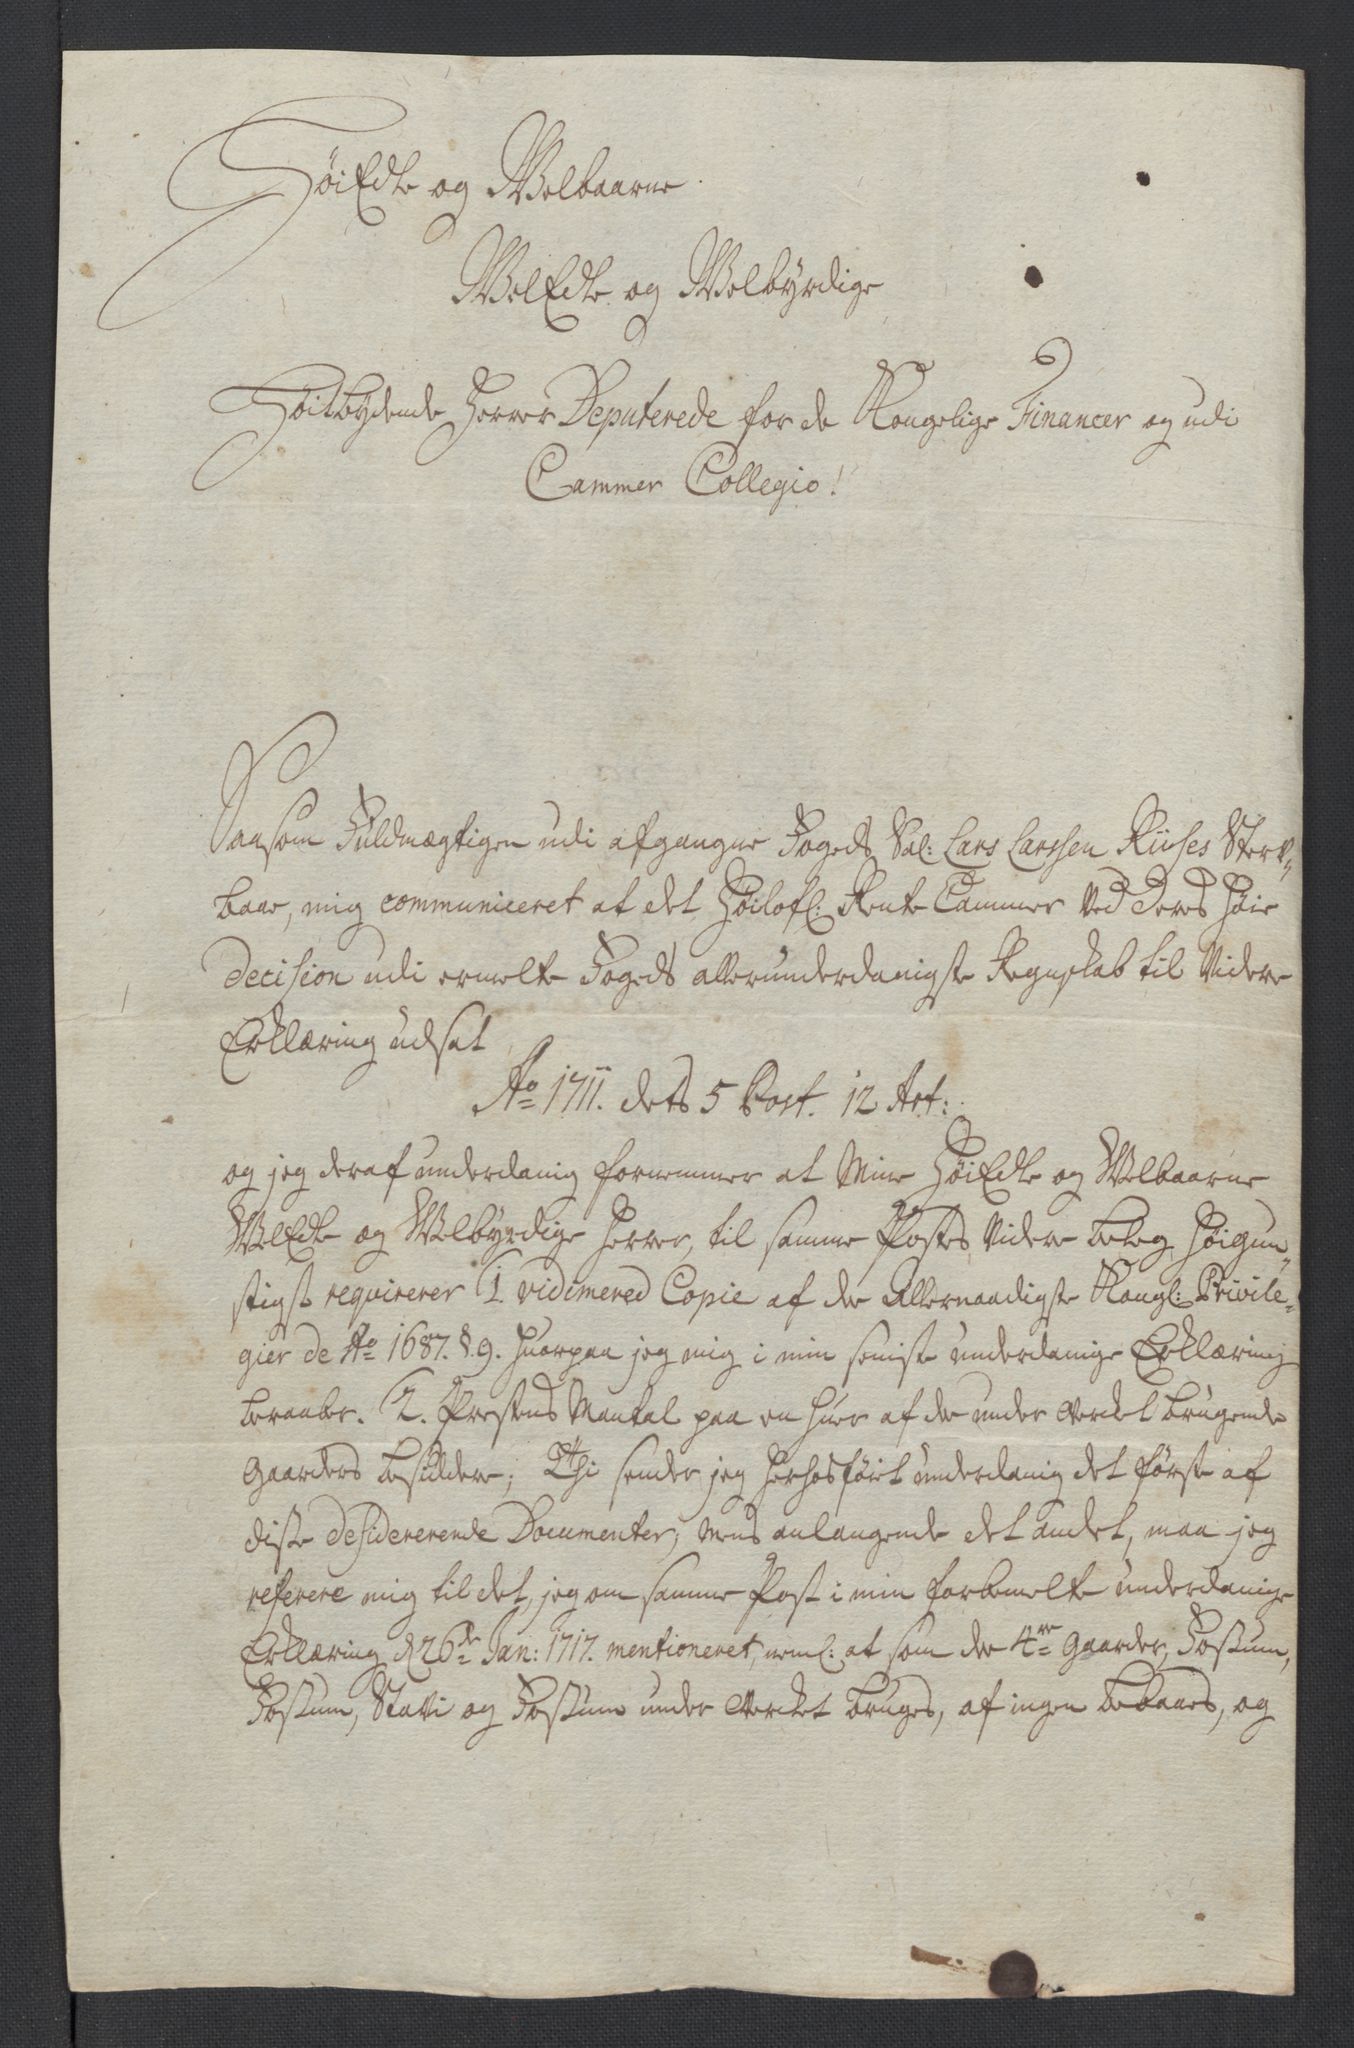 HøiEdle og Welbaarne
WelEdle og Welbyrdige
Høitbydende Herrer Deputerede for de Kongelige Financer og udi
Cammer Collegio!
Saasom Fuldmægtigen udi afgangne Fogeds Sal: Lars Larssen Riises Sterv-
boe, mig communiceret at det Høilofl: Rente Cammer ved Deres Høie
decision udi ermelte Fogeds allerunderdanigste Regnskab til videre
Erklæring udsat
Ao 1711. dets 5 Post. 12 Art:
og jeg deraf underdanig fornemmer at Mine HøiEdle og Welbaarne
WelEdle og Welbyrdige Herrer, til samme Postes videre beleg Høigun-
stigst requirerer 1 vidimered Copie af de Allernaadigste Kongl: Privile-
gier de Ao 1687. §. 9. huorpaa jeg mig i min seniste underdanige Erklæring
beraaber. 2. Prestens Mantal paa en huer af de under Verket brugende
Gaarders besiddere; Thi sender jeg herhosført underdanig det første af
diste desidererende Documenter; mens anlangende det andet, maa jeg
referere mig til det, jeg om samme Post i min forbemelte underdanige
Erklæring d 26de Jan: 1717. mentioneret, neml: at som de 4re Gaarder, Fossum,
Fossum, Stavi og Fossum under Verket bruges, af ingen beboes, og